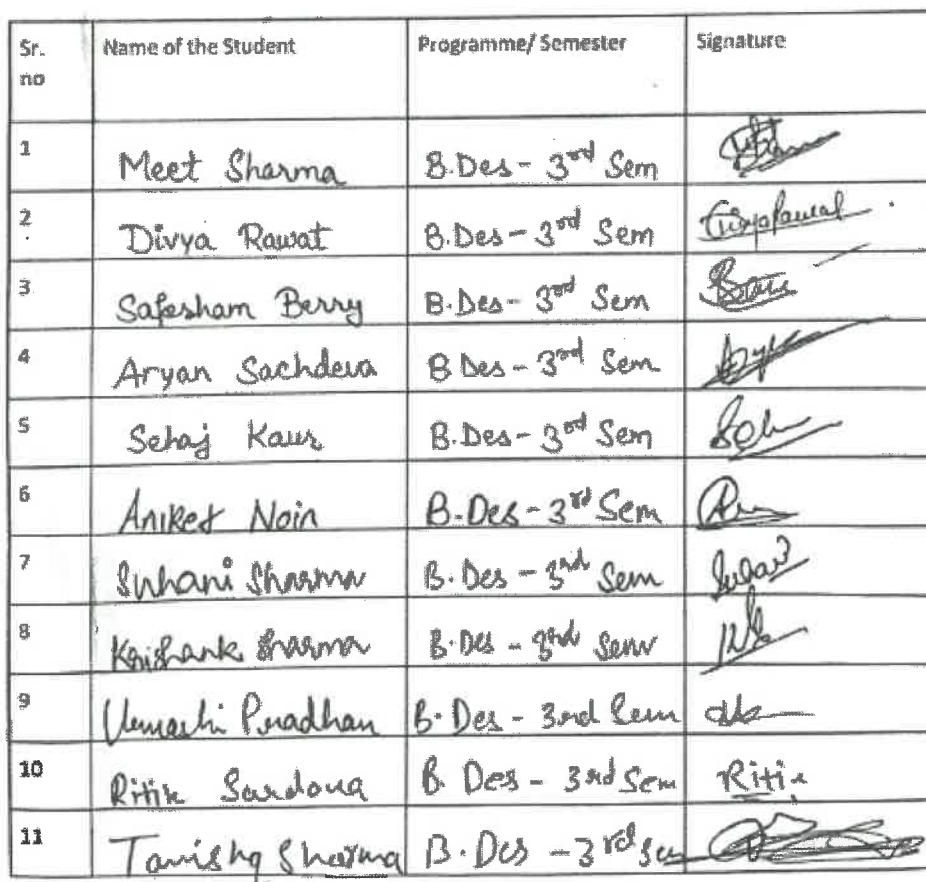 Sr. no Name of the Student Programme/ Semester Signature
1 Meet Sharma B.Des - 3rd Sem
2 Divya Rawat B.Des - 3rd Sem Divya Rawat
3 Safesham Berry B.Des - 3rd Sem
4 Aryan Sachdeva B Des - 3rd Sem
5 Sehaj Kaur B.Des - 3rd Sem
6 Aniket Noin B.Des - 3rd Sem
7 Suhani Sharma B.Des - 3rd Sem Suhani
8 Krishank Sharma B.Des - 3rd Sem
9 Pradhan B.Des - 3rd Sem
10 Ritik Sardana B. Des - 3rd Sem Ritik
11 Tanishq Sharma B.Des - 3rd Sem